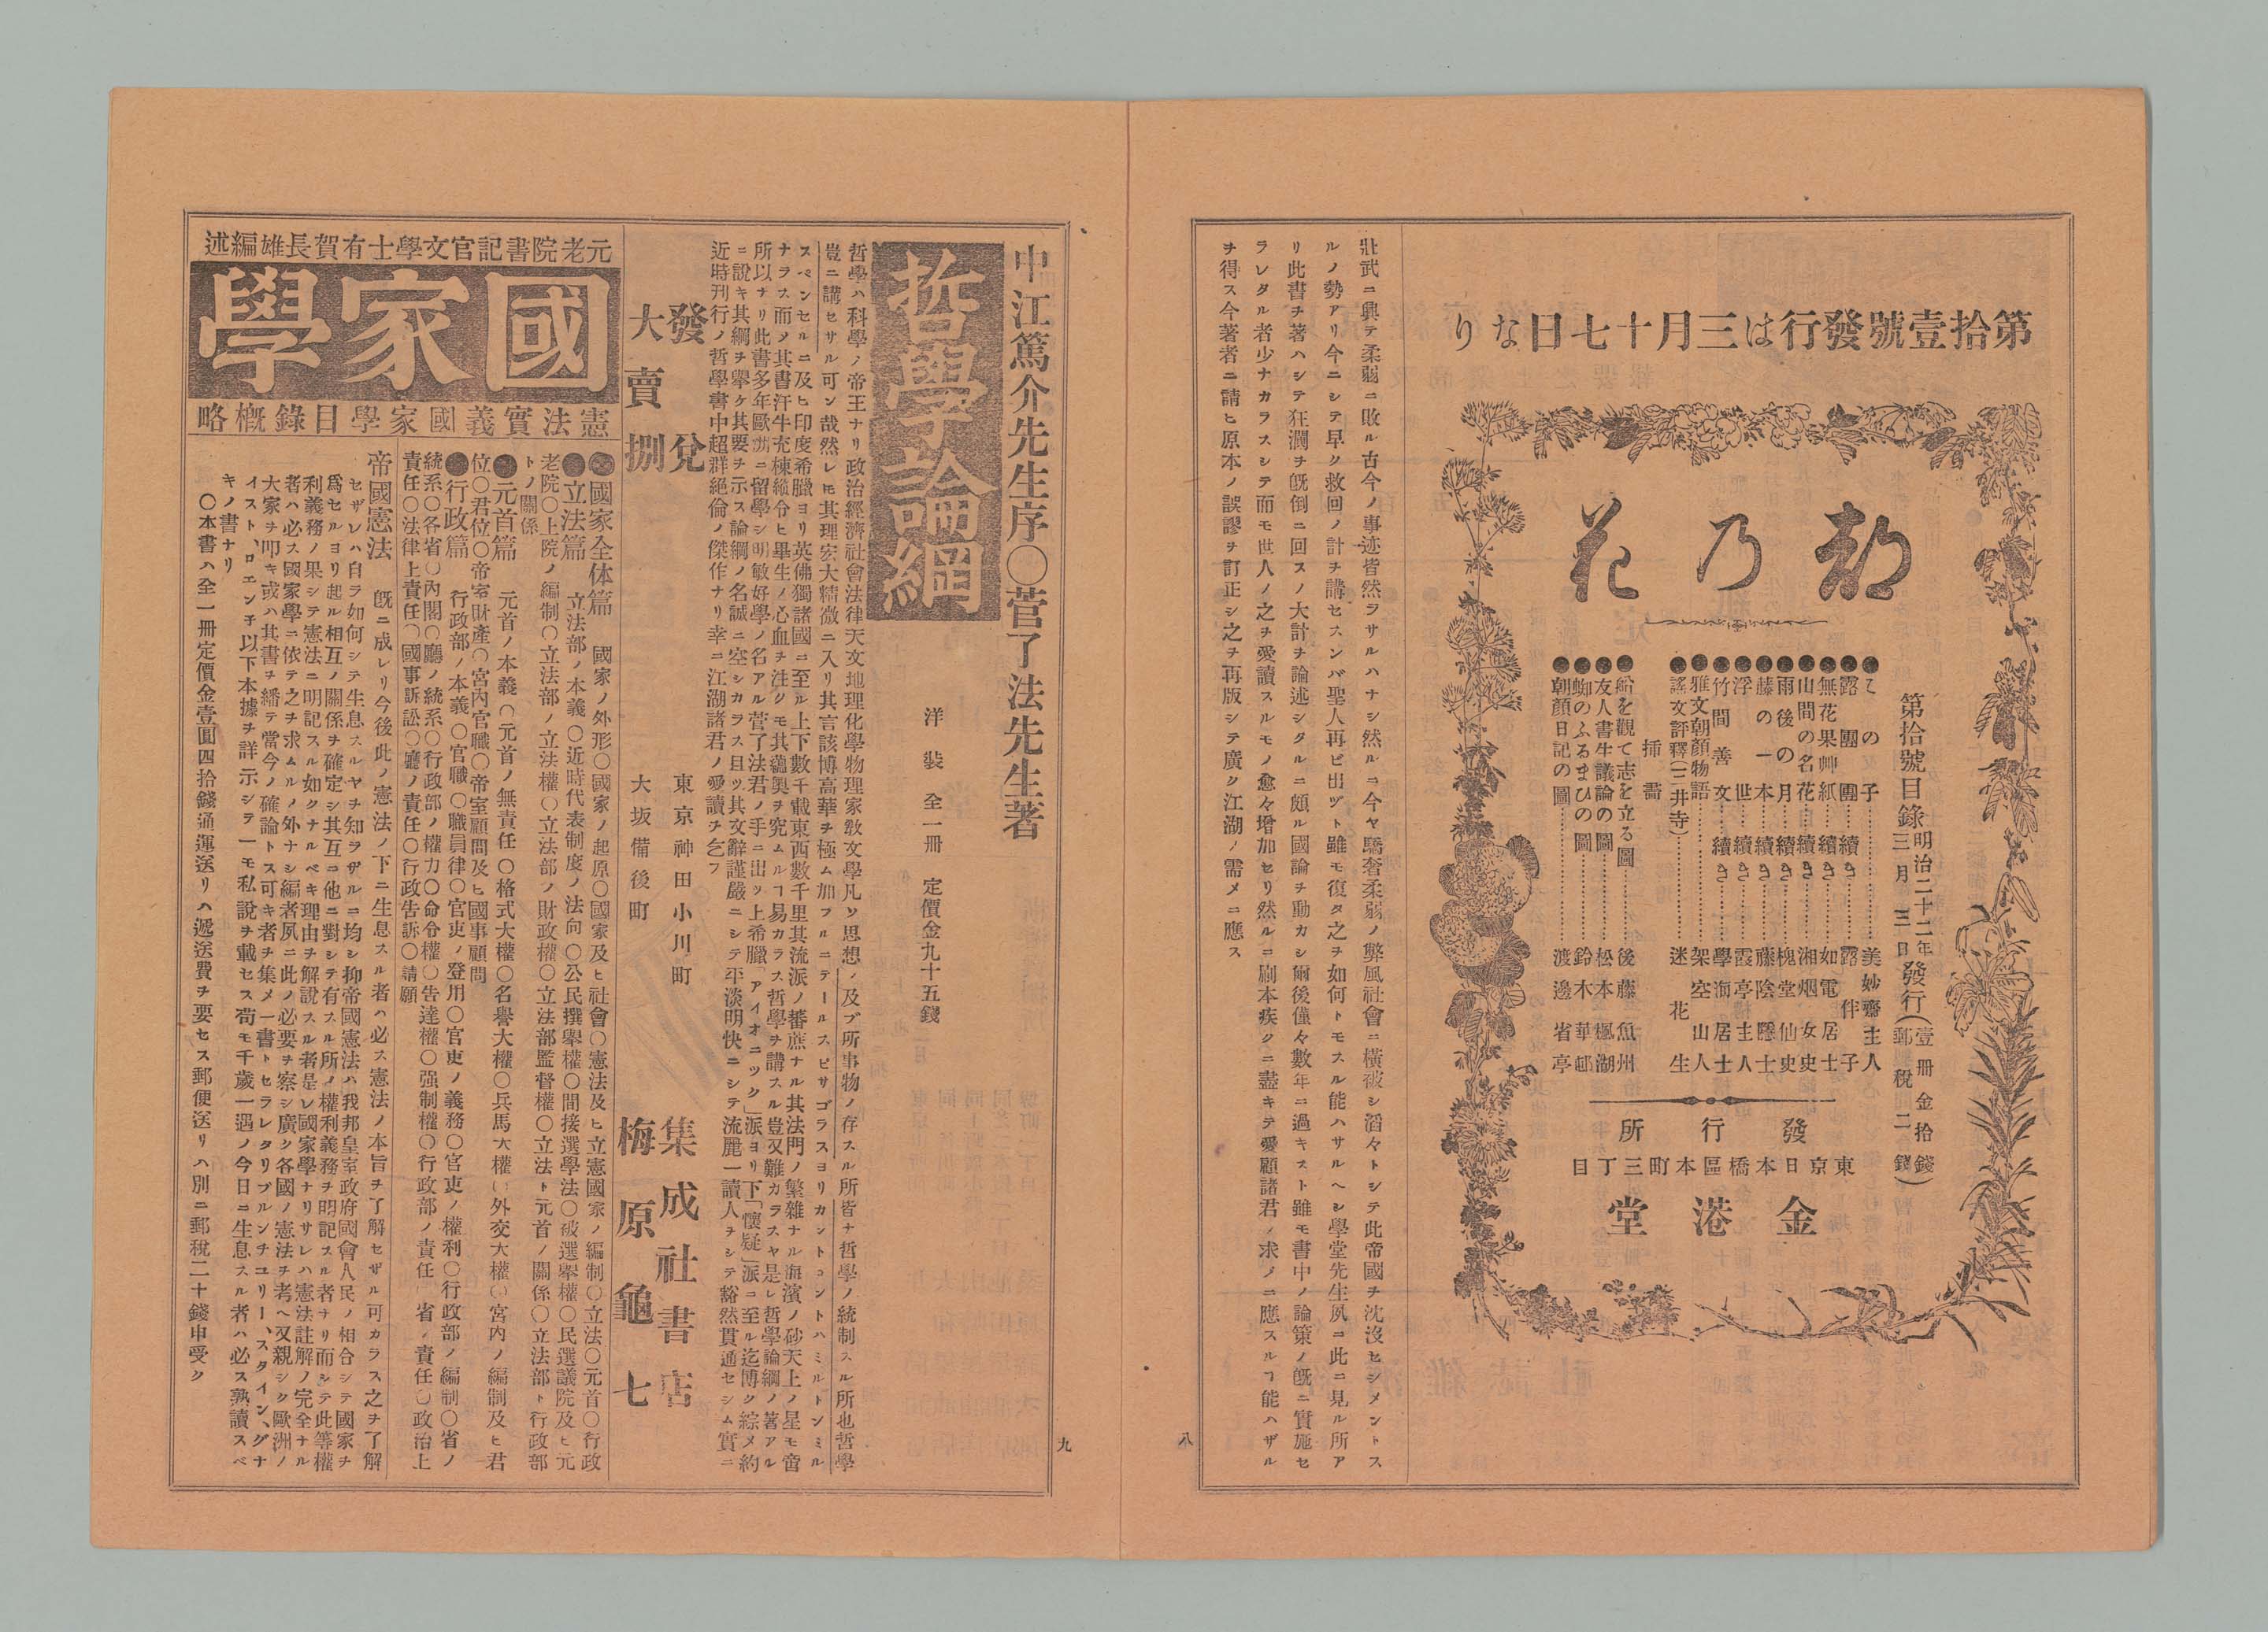 第拾壹號發行は三月十七日なり
都乃花
第拾號目錄明治二十二年三月三日發行(壹冊金拾錢郵稅二錢)
●この子……美妙齋主人
●露團團續き……露伴子
●無花果艸紙續き……如電居士
●山間の名花續き……湘烟女史
●雨後の月續き……槐堂仙史
●藤の一本續き……藤陰隱士
●浮世續き……霞亭主人
●竹間善文續き……學海居士
●雅文朝顏物語……架空山人
●謠文評釋(三井寺)……迷花生
挿畵
●船を觀て志を立る圖……後藤魚州
●友人書生議論の圖……松本楓湖
●蜘のふるまひの圖……鈴木華邨
●朝顏日記の圖……渡邊省亭
發行所
東京日本橋區本町三丁目
金港堂
壯武ニ興テ柔弱ニ敗ル古今ノ事迹皆然ラサルハナシ然ルニ今ヤ驕奢柔弱ノ弊風社會ニ橫被シ滔々トシテ此帝國ヲ沈沒セシメントス
ルノ勢アリ今ニシテ早ク救回ノ計ヲ講セスンバ聖人再ビ出ヅト雖モ復タ之ヲ如何トモスル能ハサルヘシ學堂先生夙ニ此ニ見ル所ア
リ此書ヲ著ハシテ狂瀾ヲ旣倒ニ回スノ大計ヲ論述シタルニ頗ル國論ヲ動カシ爾後僅々數年ニ過キスト雖モ書中ノ論策ノ旣ニ實施セ
ラレタル者少ナカラスシテ而モ世人ノ之ヲ愛讀スルモノ愈々增加セリ然ルニ刷本疾クニ盡キテ愛顧諸君ノ求メニ應スルヿ能ハザル
ヲ得ス今著者ニ請ヒ原本ノ誤謬ヲ訂正シ之ヲ再版シテ廣ク江湖ノ需メニ應ス
八
九
中江篤介先生序〇菅了法先生著
哲學論綱
洋裝全一冊 定價金九十五錢
哲學ハ科學ノ帝王ナリ政治經濟社會法律天文地理化學物理家敎文學凡ソ思想ノ及ブ所事物ノ存スル所皆ナ哲學ノ統制スル所也哲學
豈ニ講セサル可ン哉然レㇳモ其理宏大精微ニ入リ其言該博高華ヲ極ム加フルニテールスピサゴラスヨリカントコントハミルトンミル
スペンセルニ及ヒ印度希臘ヨリ英佛獨諸國ニ至ル上下數千載東西數千里其流派ノ蕃蔗ナル其法門ノ繁雜ナル海濱ノ砂天上ノ星モ啻
ナラス而ヲ其書汗牛充棟縱令ヒ畢生ノ心血ヲ注クモ其蘊奧ヲ究ムルヿ易カラス哲學ヲ講スル豈又難カラスヤ是レ哲學論綱ノ著アル
所以ナリ此書多年歐洲ニ留學シ明敏好學ノ名アル菅了法君ノ手ニ出ツ上希臘「アイオニック」派ヨリ下「懷疑」派ニ至ル迄博ク綜メ約
ニ說キ其綱ヲ擧ケ其要ヲ示ス論綱ノ名誠ニ空シカラス且ツ其文辭謹嚴ニシテ平淡明快ニシテ流麗一讀人ヲシテ豁然貫通セシム實ニ
近時刊行ノ哲學書中超群絕倫ノ傑作ナリ幸ニ江湖諸君ノ愛讀ヲ乞フ
發兌 東京神田小川町 集成社書店
大賣捌 大坂備後町 梅原龜七
元老院書記官文學士有賀長雄編述
國家學
憲法實義國家學目錄槪略
●國家全体篇 國家ノ外形〇國家ノ起原〇國家及ヒ社會〇憲法及ヒ立憲國家ノ編制〇立法〇元首〇行政
●立法篇 立法部ノ本義〇近時代表制度ノ法向〇公民撰擧權〇間接選學法〇破選擧權〇民選議院及ヒ元
老院〇上院ノ編制〇立法部ノ立法權〇立法部ノ財政權〇立法部監督權〇立法ト元首ノ關係〇立法部ト行政部
トノ關係
●元首篇 元首ノ本義〇元首ノ無責任〇格式大權〇名譽大權〇兵馬大權〇外交大權〇宮內ノ編制及ヒ君
位〇君位〇帝室財產〇宮內官職〇帝室顧問及ヒ國事顧問
●行政篇 行政部ノ本義〇官職〇職員律〇官吏ノ登用〇官吏ノ義務〇官吏ノ權利〇行政部ノ編制〇省ノ
統系〇各省〇內閣〇廳ノ統系〇行政部ノ權力〇命令權〇告達權〇强制權〇行政部ノ責任〇省ノ責任〇政治上
責任〇法律上責任〇國事訴訟〇廳ノ責任〇行政告訴〇請願
帝國憲法 旣ニ成レリ今後此ノ憲法ノ下ニ生息スル者ハ必ス憲法ノ本旨ヲ了解セザル可カラス之ヲ了解
セザレハ自ラ如何シテ生息スルヤヲ知ラザルニ均シ抑帝國憲法ハ我邦皇室政府國會人民ノ相合シテ國家ヲ
爲セルヨリ起ル相互ノ關係ヲ確定シ其互ニ他ニ對シテ有スル所ノ權利義務ヲ明記スル者ナリ而シテ此等權
利義務ノ果シテ憲法ニ明記スル如クナルベキ理由ヲ解說スル者是レ國家學ナリサレハ憲法註解ノ完全ナル
者ハ必ス國家學ニ依テ之ヲ求ムルノ外ナシ編者夙ニ此ノ必要ヲ察シ廣ク各國ノ憲法ヲ考ヘ又親シク歐洲ノ
大家ヲ叩キ或ハ其書ヲ繙テ當今ノ確論トス可キ者ヲ集メ一書トセラレタリブルンチユリー、スタイン、グナ
イスト、ロエンヲ以下本據ヲ詳示シテ一モ私說ヲ載セス苟モ千歲一遇ノ今日ニ生息スル者ハ必ス熟讀スベ
キノ書ナリ
〇本書ハ全一冊定價金壹圓四拾錢通運送リハ遞送費ヲ要セス郵便送リハ別ニ郵稅二十錢申受ク